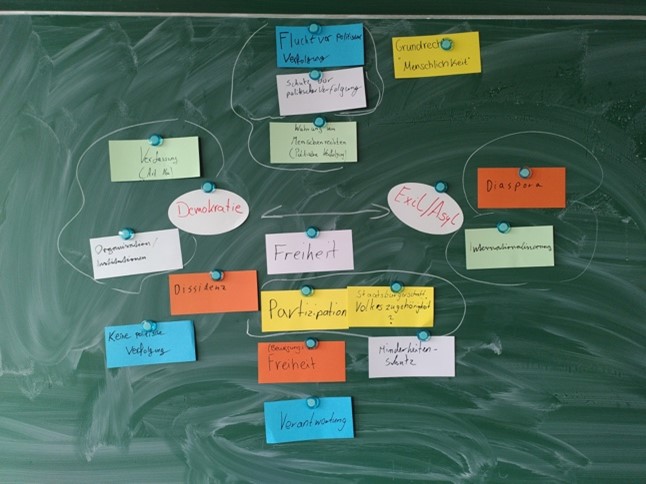 Flucht vor politischer
Verfolgung
Grundrecht
"Menschlichkeit"
Schutz vor
politischer Verfolgung
Wahrung von
Menschenrechten
(Politische Kultur)
Verfassung
Diaspora
Demokratie
Exil/Asyl
Organisation/
Institutionen
Freiheit
Internationalisierung
Dissidenz
Partizipation
Staatsbürgerschaft
Volkszugehörigkeit
?
Keine politische
Verfolgung
(Bewegungs)
Freiheit
Minderheiten-
schutz
Verantwortung